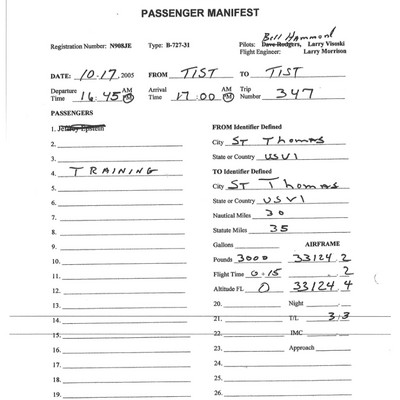 PASSENGER MANIFEST
Bill Hammond
Registration Number: N908JE Type: B-727-31 Pilots: Dave Rodgers, Larry Visoski
Flight Engineer: Larry Morrison
DATE: 10.17.2005 FROM TIST TO TIST
Departure Time 16:45 AM PM Arrival Time 17:00 AM PM Trip Number 347
PASSENGERS FROM Identifier Defined
1. Jeffrey Epstein
City ST Thomas
2.
State or Country USVI
3.
TO Identifier Defined
4. TRAINING
City ST Thomas
5.
State or Country USVI
6.
Nautical Miles 30
7.
Statute Miles 35
8.
Gallons AIRFRAME
9.
Pounds 3000 33124.2
10.
Flight Time 0:15 .2
11.
Altitude FL 0 33124.4
12.
20. Night
13.
21. T/L 3/3
14.
22. IMC
15.
23. Approach
16.
24.
17.
25.
18.
26.
19.